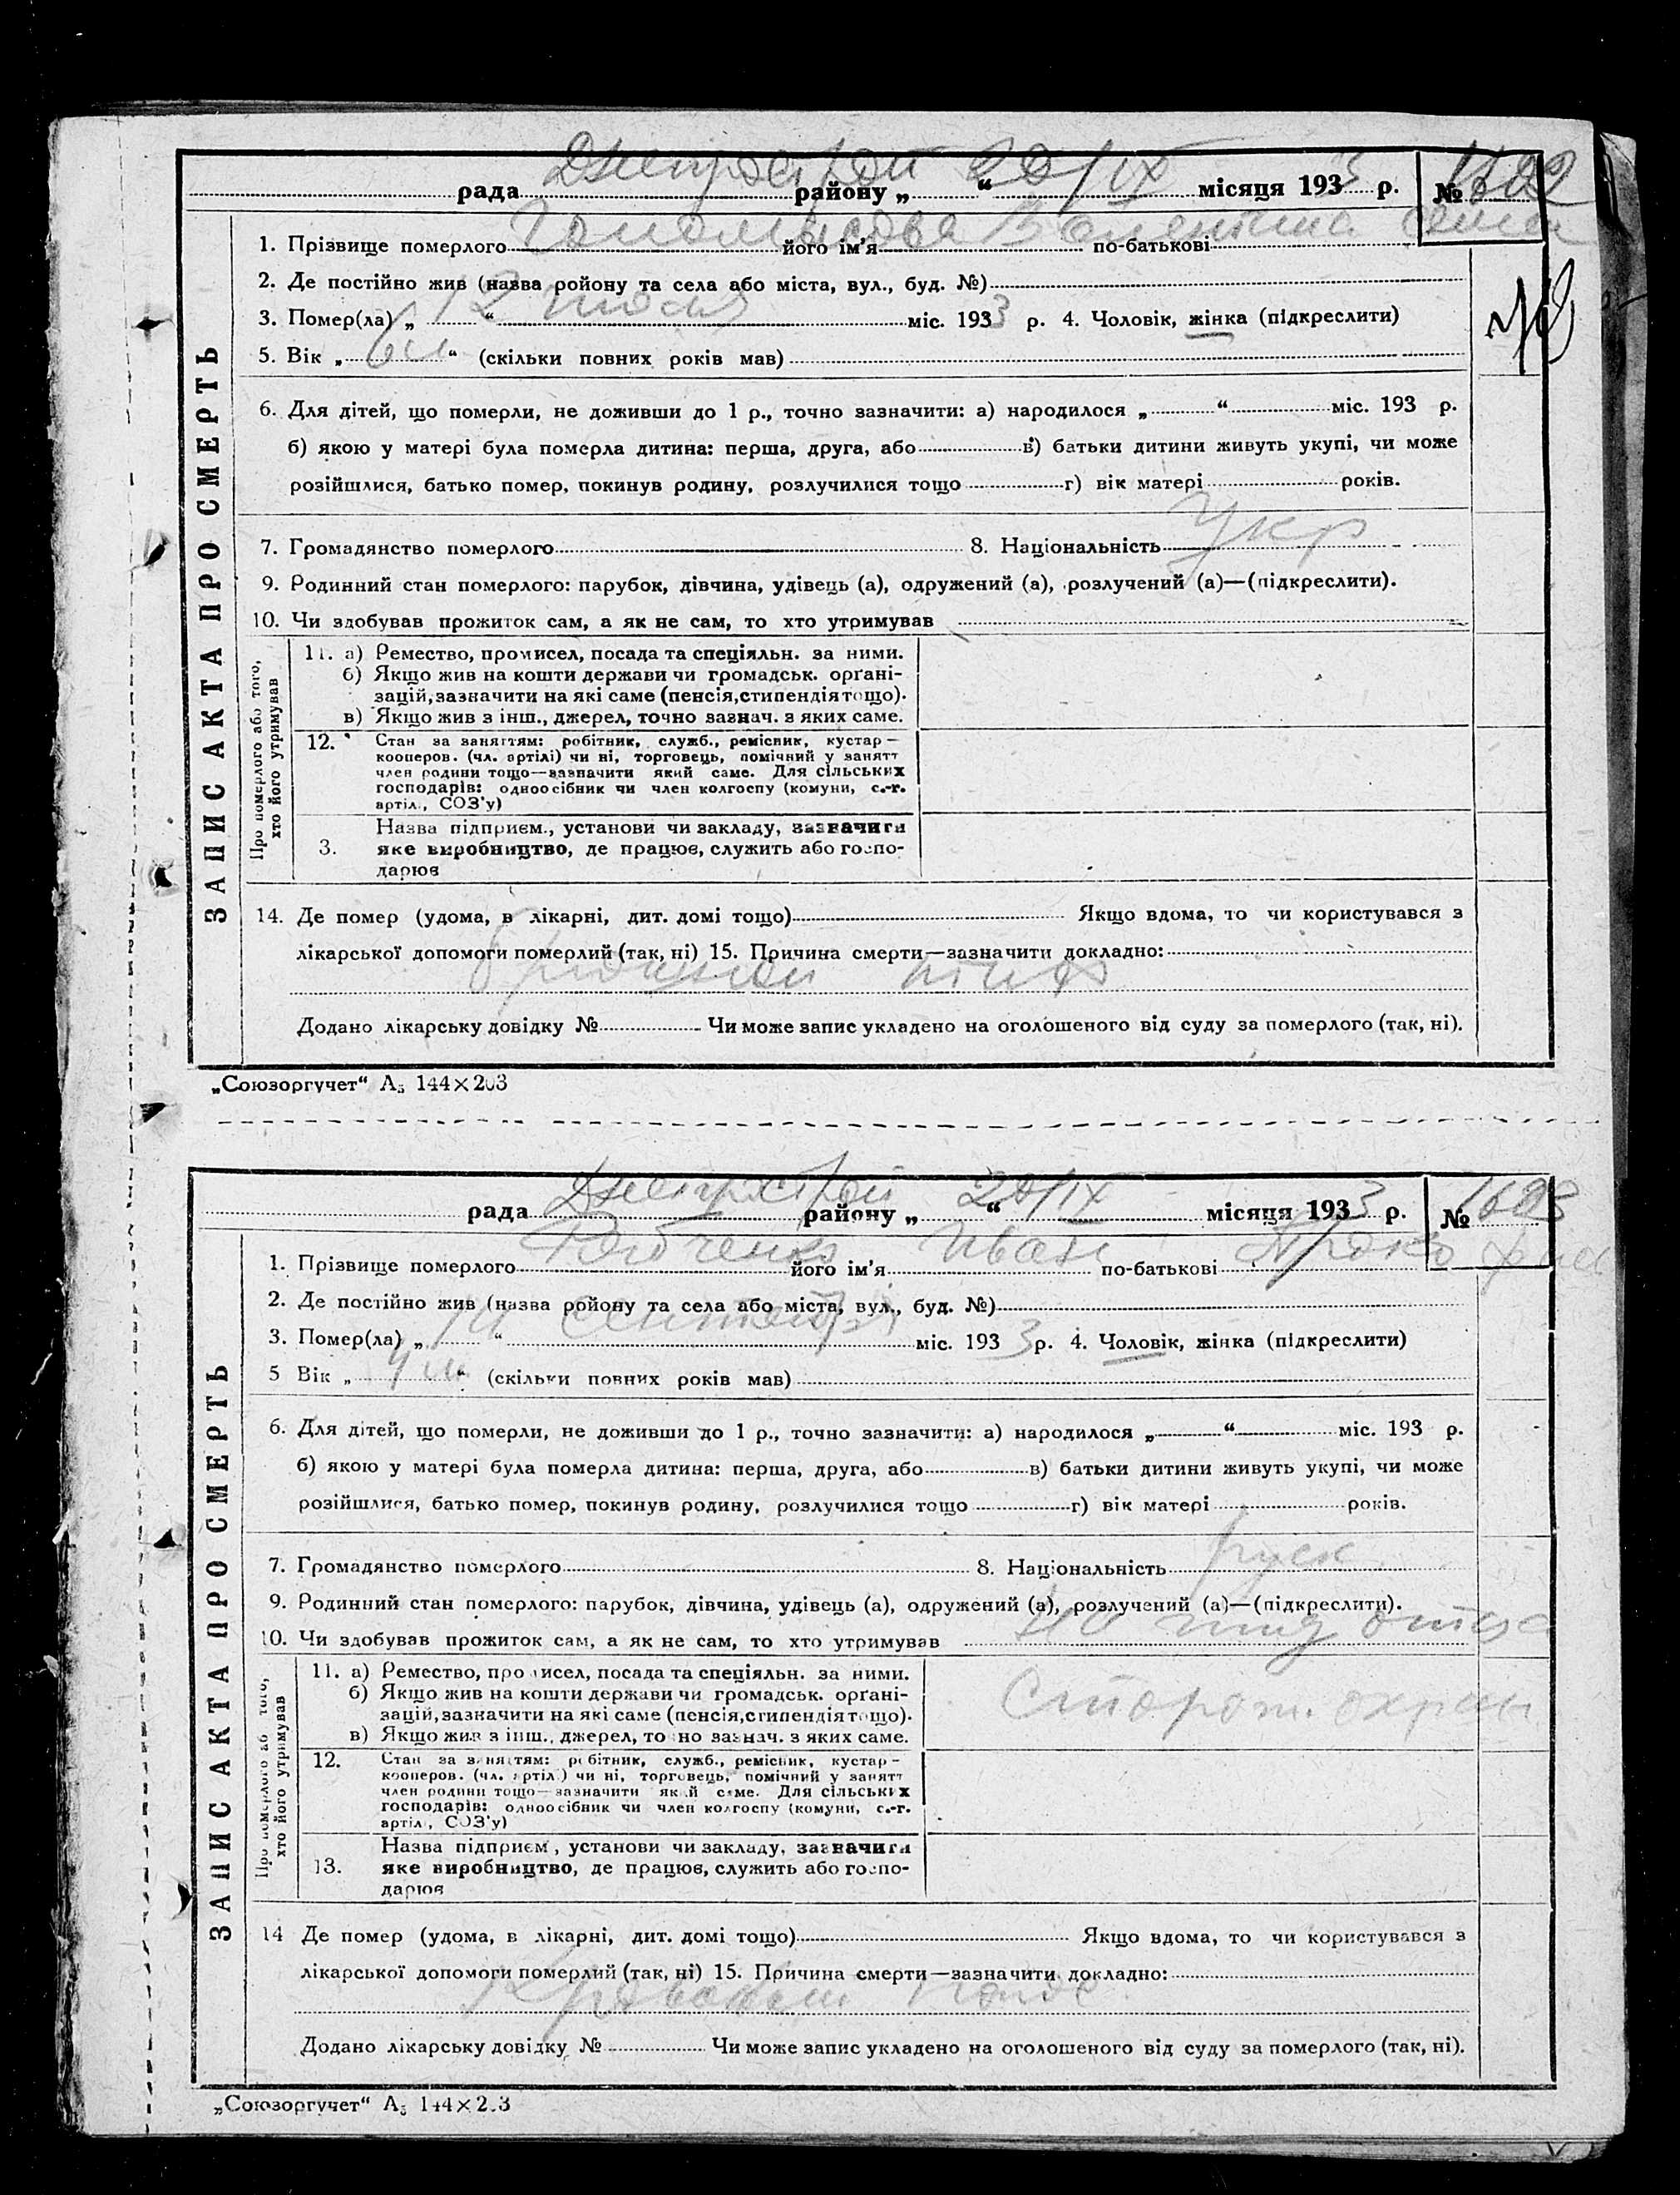 Днепрострой 20/IX 3 1602
рада районy „ “ місяця 193 р. №
Валентина
1. Прізвище померлого його ім’я по-батькові
2. Де постійно жив (назва ройону та села або міста, вул., буд. №)
12 июля 3
3. Помер(ла) „ “ міс. 193 р. 4. Чоловік, жінка (підкреслити)
6 м
5. Вік „ “ (скільки повних років мав)
6. Для дітей, що померли, не доживши до 1 р., точно зазначити: а) народилося „ “ міс. 193 р.
б) якою у матері була померла дитина: перша, друга, або в) батьки дитини живуть укупі, чи може
розійшлися, батько помер, покинув родину, розлучилися тощо г) вік матері років.
укр
7. Громадянство померлого 8. Національність
9. Родинний стан померлого: парубок, дівчина, удівець (а), одружений (а), розлучений (а)—(підкреслити).
10. Чи здобував прожиток сам, а як не сам, то хто утримував
ЗАПИС АКТА ПРО СМЕРТЬ
Про померлого або того,
хто його утримував
11. а) Ремество, промисел, посада та спеціяльн. за ними.
б) Якщо жив на кошти держави чи громадськ. орґані-
зацій, зазначити на які саме (пенсія, стипендія тощо).
в) Якщо жив з інш., джерел, точно зазнач. з яких саме.
12. Стан за заняттям: робітник, служб., ремісник, кустар—
кооперов. (чл. артілі) чи ні, торговець, помічний у занятт
член родини тощо—зазначити який саме. Для сільських
господарів: одноосібник чи член колгоспу (комуни, с.-г.
артіл., СОЗ’у)
Назва підприєм., установи чи закладу, зазначити
3. яке виробництво, де працює, служить або госпо-
дарює
14. Де помер (удома, в лікарні, дит. домі тощо) Якщо вдома, то чи користувався з
лікарської допомоги померлий (так, ні) 15. Причина смерти—зазначити докладно:
Додано лікарську довідку № Чи може запис укладено на оголошеного від суду за померлого (так, ні).
„Союзоргучет“ А₅ 144×203
Днепрострой 20/IX 3 1603
рада району „ “ місяця 193 р. №
Иван
1. Прізвище померлого його ім’я по-батькові
2. Де постійно жив (назва ройону та села або міста, вул., буд. №)
14 сентября 3
3. Помер(ла) „ “ міс. 193 р. 4. Чоловік, жінка (підкреслити)
4 м
5 Вік „ “ (скільки повних років мав)
6. Для дітей, що померли, не доживши до 1 р., точно зазначити: а) народилося „ “ міс. 193 р.
б) якою у матері була померла дитина: перша, друга, або в) батьки дитини живуть укупі, чи може
розійшлися, батько помер, покинув родину, розлучилися тощо г) вік матері років.
руск
7. Громадянство померлого 8. Національність
9. Родинний стан померлого: парубок, дівчина, удівець (а), одружений (а), розлучений (а)—(підкреслити).
на ижд отца
10. Чи здобував прожиток сам, а як не сам, то хто утримував
ЗАПИС АКТА ПРО СМЕРТЬ
Про померлого або того,
хто його утримував
11. а) Ремество, промисел, посада та спеціяльн. за ними.
Сторож. охраны
б) Якщо жив на кошти держави чи громадськ. орґані-
зацій, зазначити на які саме (пенсія, стипендія тощо).
в) Якщо жив з інш., джерел, точно зазнач. з яких саме.
12. Стан за заняттям: робітник, служб., ремісник, кустар—
кооперов. (чл. артіл.) чи ні, торговець, помічний у занятт
член родини тощо—зазначити який саме. Для сільських
господарів: одноосібник чи член колгоспу (комуни, с.-г.
артіл., СОЗ’у)
Назва підприєм., установи чи закладу, зазначити
13. яке виробництво, де працює, служить або госпо-
дарює
14 Де помер (удома, в лікарні, дит. домі тощо) Якщо вдома, то чи користувався з
лікарської допомоги померлий (так, ні) 15. Причина смерти—зазначити докладно:
Кровавый понос
Додано лікарську довідку № Чи може запис укладено на оголошеного від суду за померлого (так, ні).
„Союзоргучет“ А₅ 144×2.3